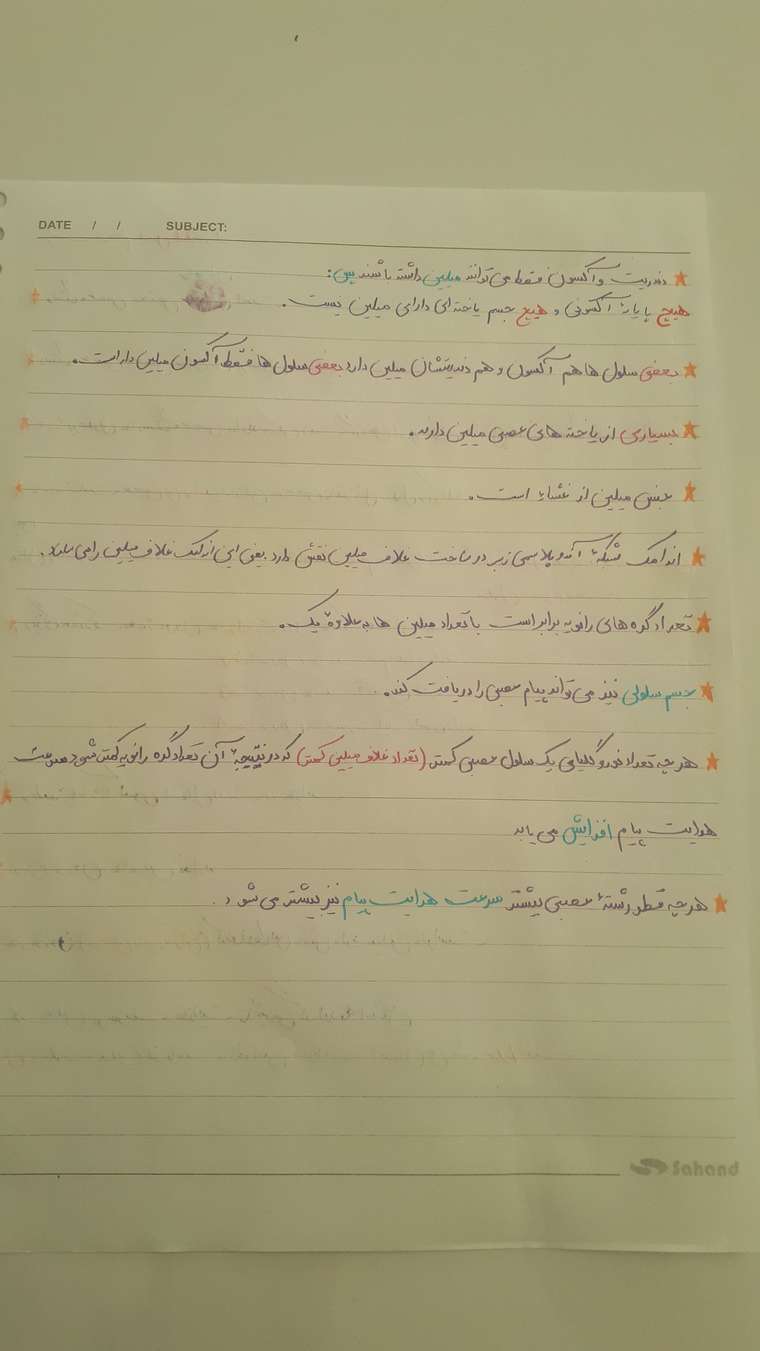 DATE / / SUBJECT:
دندریت و آکسون فقط می توانند میلین داشته باشند پس:
هیچ پایانهٔ آکسونی و هیچ جسم یاخته ای دارای میلین نیست.
بعضی سلول ها هم آکسون و هم دندریتشان میلین دارد بعضی سلول ها فقط آکسون میلین دار است.
بسیاری از یاخته های عصبی میلین دارند.
جنس میلین از غشاء است.
اندامک شبکهٔ آندوپلاسمی زبر در ساخت غلاف میلین نقش دارد یعنی این اندامک غلاف میلین را می سازد.
تعداد گره های رانویه برابر است با تعداد میلین ها به علاوهٔ یک.
جسم سلولی نیز می تواند پیام عصبی را دریافت کند.
هر چه تعداد نوروگلیایی یک سلول عصبی کمتر (تعداد غلاف میلین کمتر) که در نتیجهٔ آن تعداد گره رانویه کمتر می شود سرعت
هدایت پیام افزایش می یابد
هر چه قطر رشتهٔ عصبی بیشتر سرعت هدایت پیام نیز بیشتر می شود.
Sahand